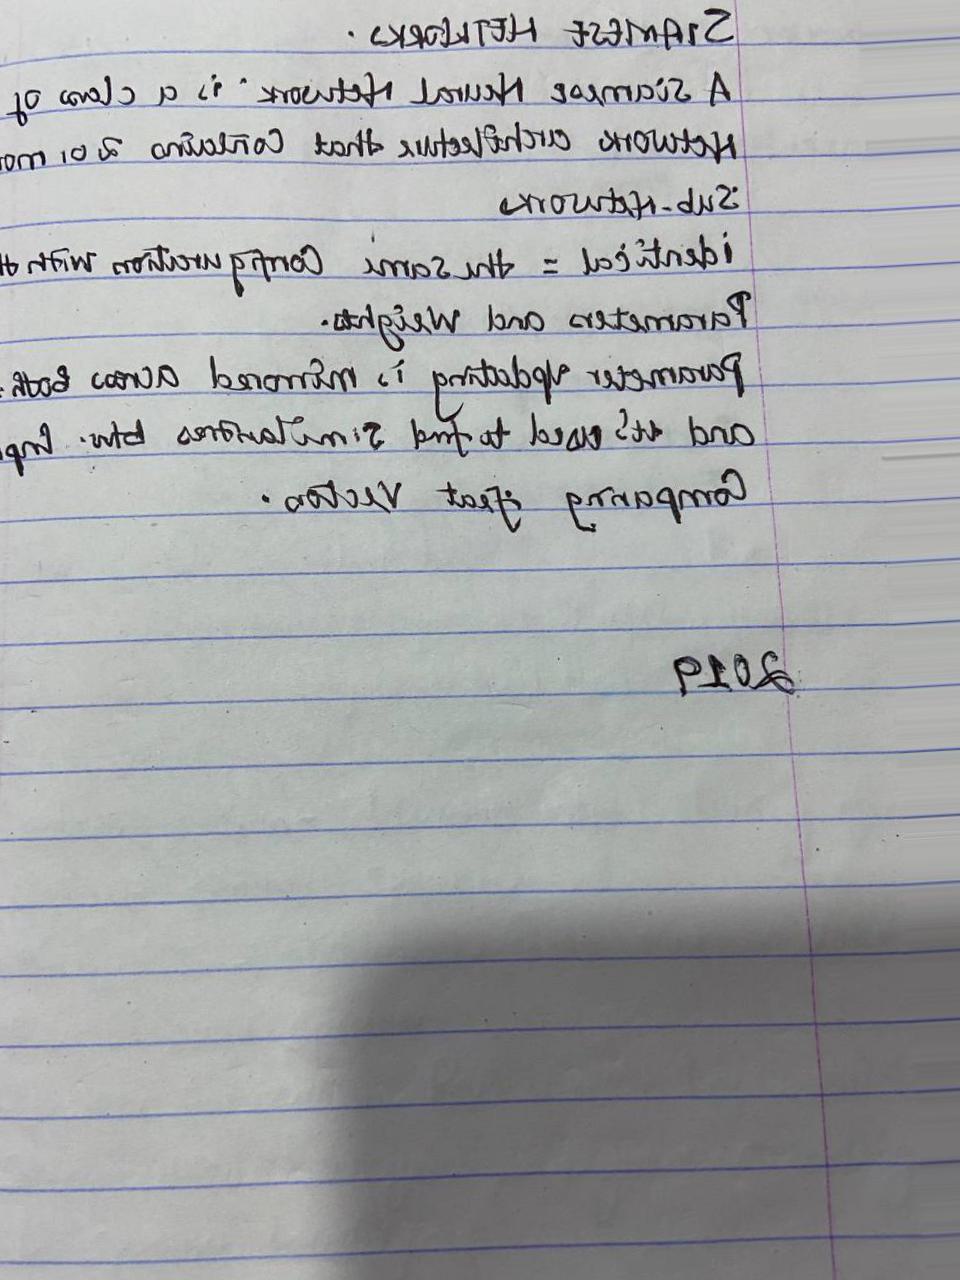 SIAMESE NETWORKS.
A Siamese Neural Network is a class of
Network architecture that Contains 2 or mor
Sub-Networks
identical = the same Configuration with th
Parameters and Weights.
Parameter Updating is mirrored across both
and it's used to find Similarities btw. Inp
Comparing its feat Vectors.
2019